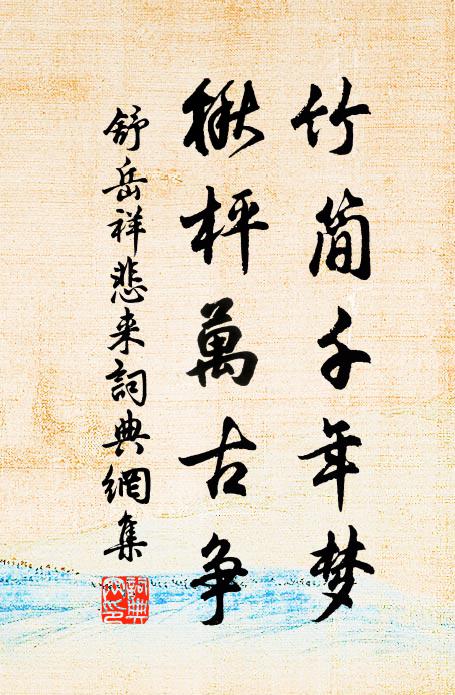 竹简千年梦
楸枰萬古争
舒岳祥悲来詞典網集